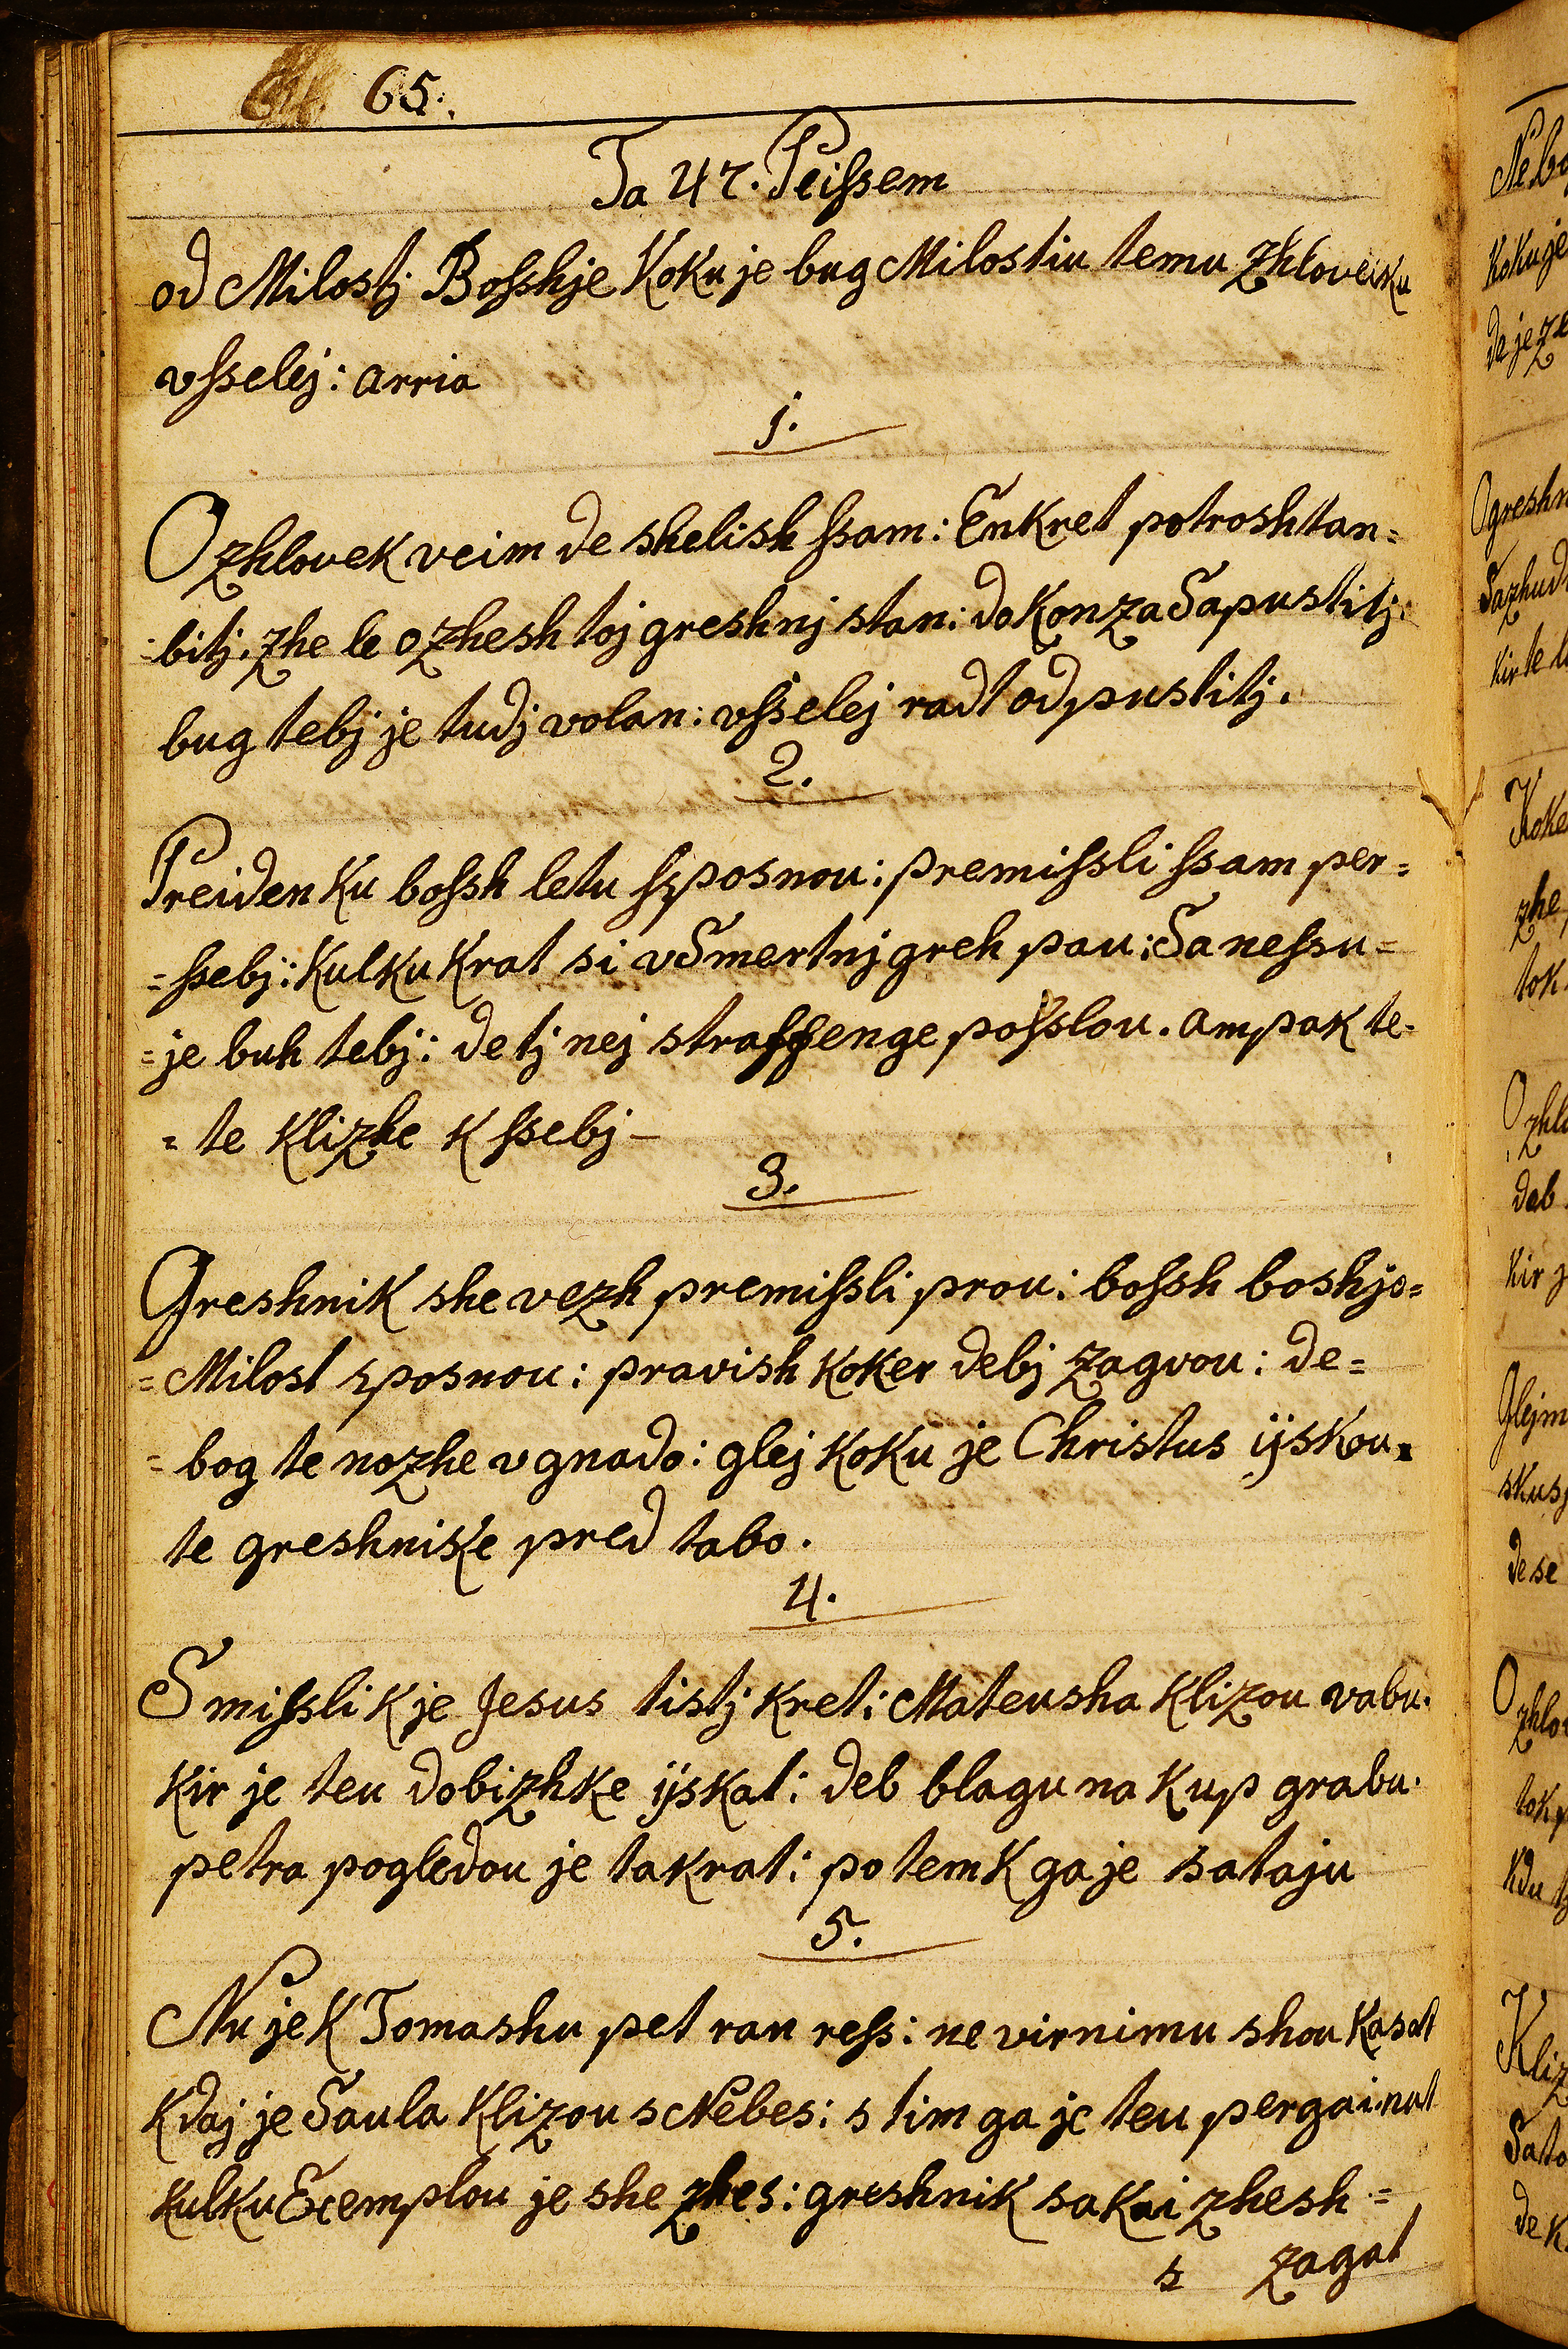 65.
Ta 47. Peißem
od Milostj Boßhje Koku je bug Milostiu temu zhloveku
vßelej: arria
1.
O zhlovek veim de shelish ßam: Enkret potroshtan=
=bitj. zhe le ozhesh toj greshnj stan: do Konza Sapustitj.
bug tebj je tudj volan: vßelej radt odpustitj.
2.
Preiden Ku boßh letu ßposnou: premißli ßam per=
=ßebj: Kulku Krat si v Smertnj greh pau: Sa neßu=
=je buh tebj: de tj nej straffenge poßlou. ampak te=
=te Klizhe K ßebj—
3.
Greshnik she vezh premißli prou: boßh boshjo=
=Milost sposnou: pravish Koker debj zagvou: de=
=bog te nozhe v gnado: glej Koku je Christus ijskou
te greshnike pred tabo.
4.
S mißli K je Jesus tistj Kret: Mateusha Klizou vabu.
Kir je teu dobizhke ijskat: deb blagu na Kup grabu.
petra pogledou je takrat: potem K ga je sataju
5.
Nu je K Tomashu pet ran reß: ne virnimu shou Kasat
Kdaj je Saula Klizou s Nebes: s tim ga je teu pergainat
Kulku Exemplou je she zhes: greshnik sa Kai zhesh=
s zagat
Ogreshn
Kir te
de se